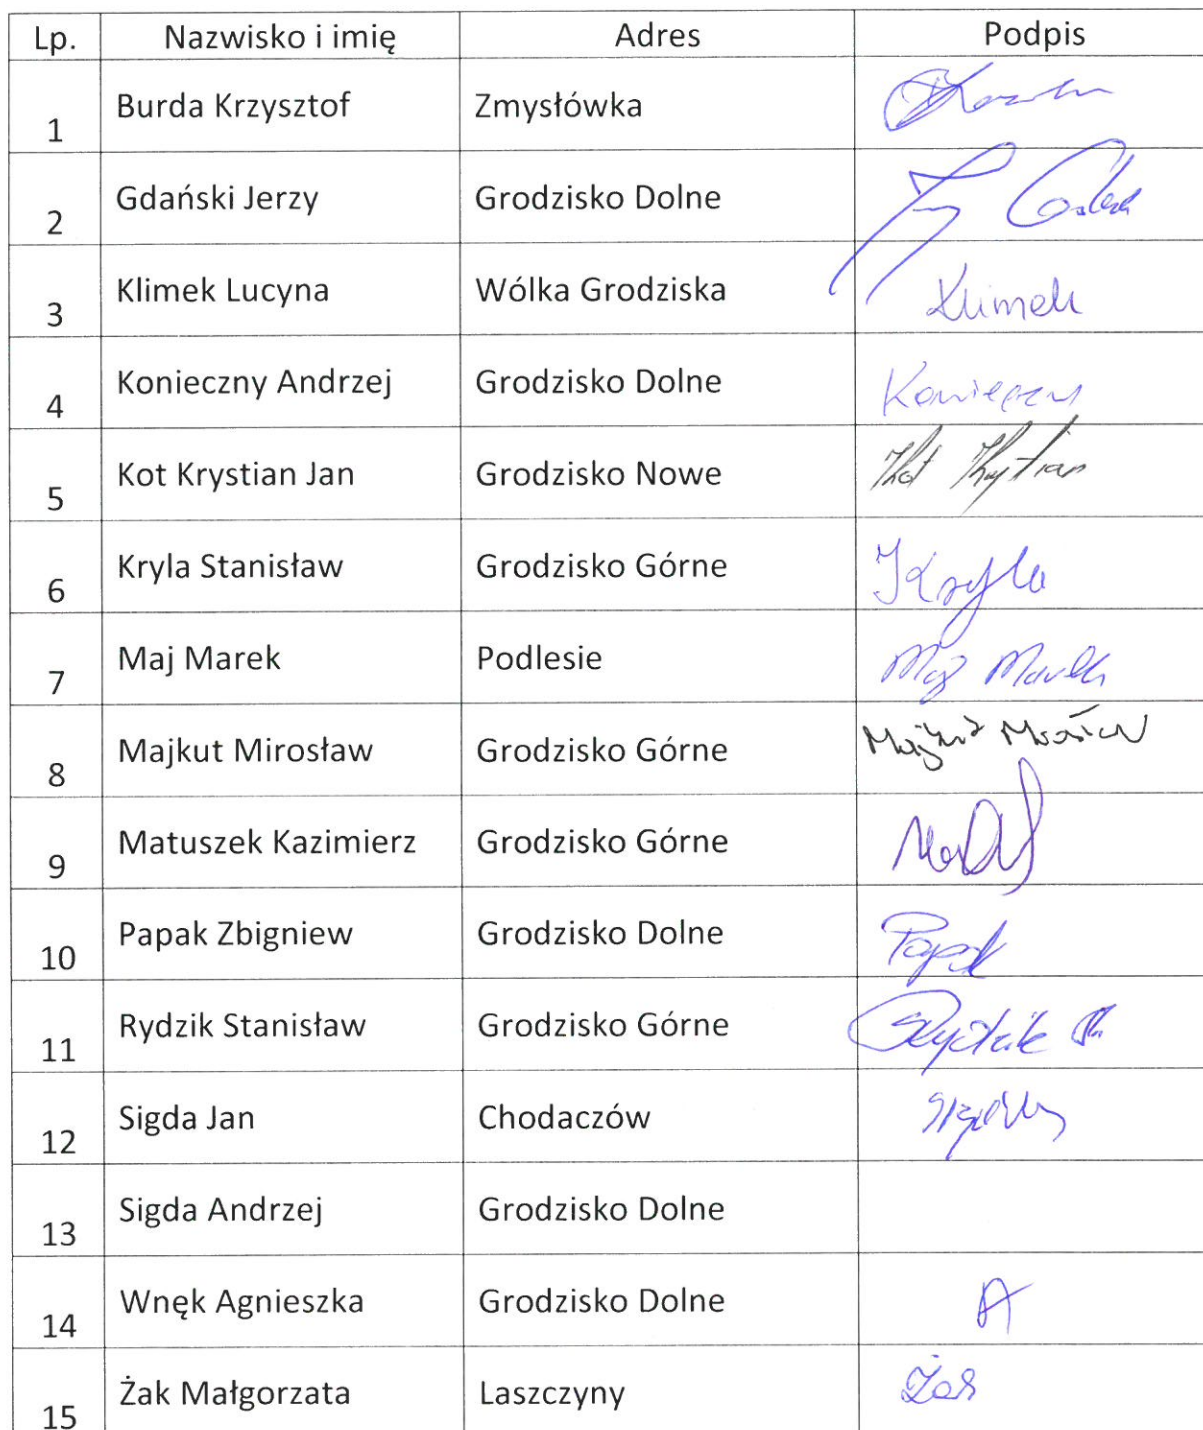 Lp. Nazwisko i imię Adres Podpis
1 Burda Krzysztof Zmysłówka
2 Gdański Jerzy Grodzisko Dolne
3 Klimek Lucyna Wólka Grodziska Klimek
4 Konieczny Andrzej Grodzisko Dolne
5 Kot Krystian Jan Grodzisko Nowe Kot Krystian
6 Kryla Stanisław Grodzisko Górne Kryla
7 Maj Marek Podlesie Maj Marek
8 Majkut Mirosław Grodzisko Górne Majkut
9 Matuszek Kazimierz Grodzisko Górne
10 Papak Zbigniew Grodzisko Dolne Papak
11 Rydzik Stanisław Grodzisko Górne Rydzik
12 Sigda Jan Chodaczów
13 Sigda Andrzej Grodzisko Dolne
14 Wnęk Agnieszka Grodzisko Dolne A
15 Żak Małgorzata Laszczyny Żak